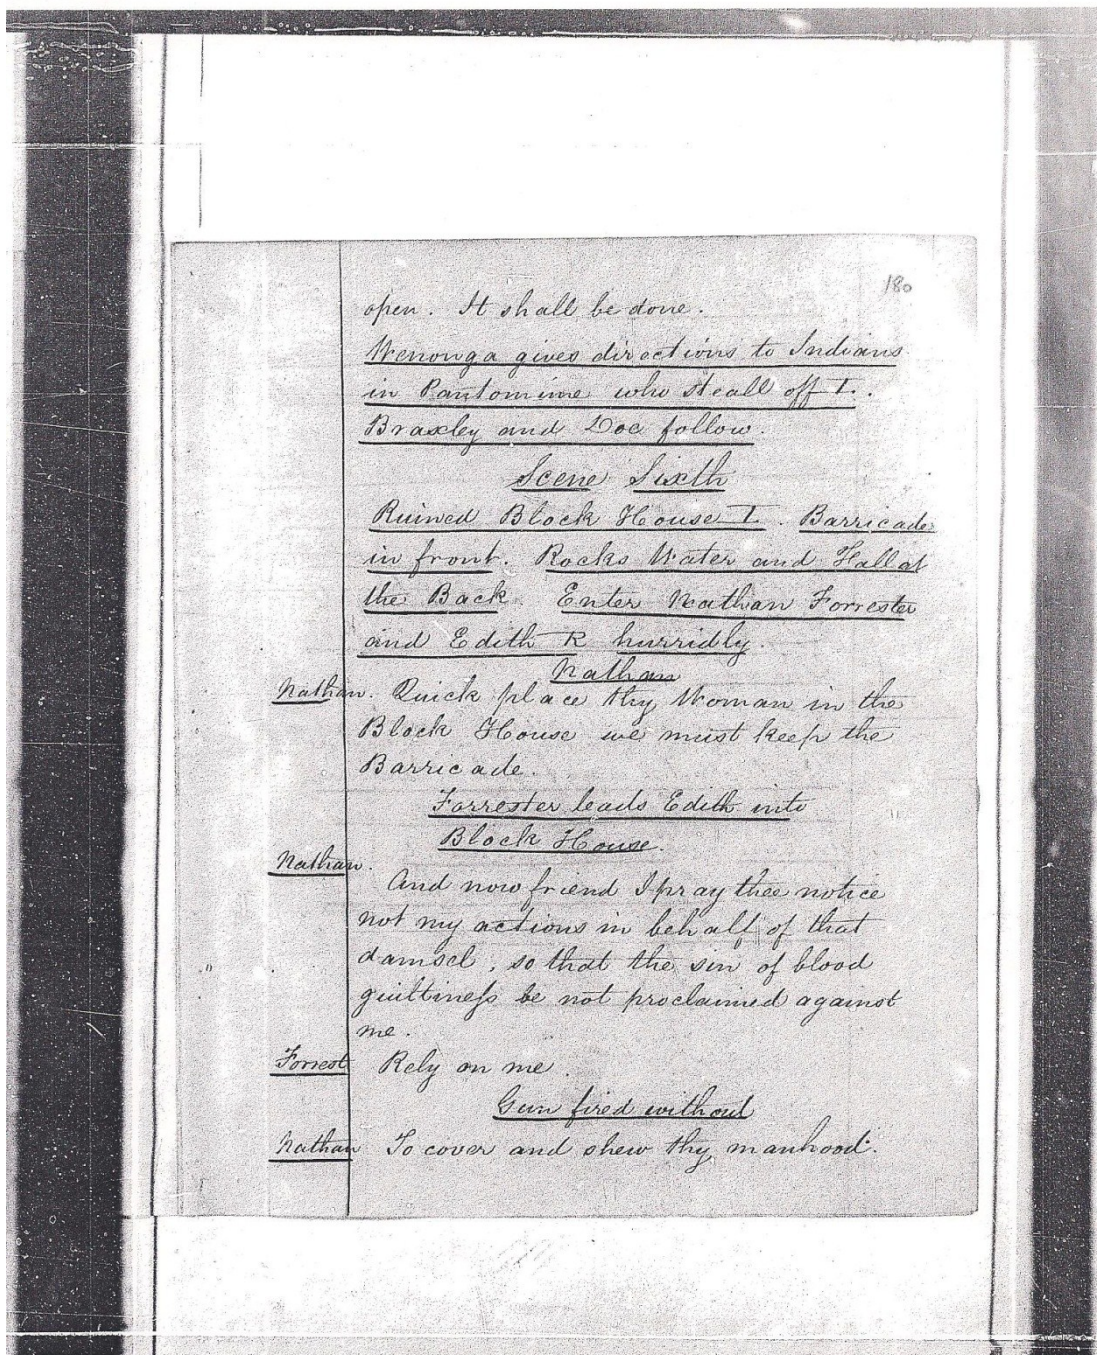 180
open. It shall be done.
Wenonga gives directions to Indians
in Pantomime who steall off L.
Braxley and Doe follow.
Scene Sixth
Ruined Block House L. Barricade
in front. Rocks Water and Fall at
the Back Enter Nathan Forrester
and Edith R hurridly.
Nathan
Nathan. Quick place thy Woman in the
Block House we must keep the
Barricade.
Forrester leads Edith into
Block House.
Nathan.
And now friend I pray thee notice
not my actions in behalf of that
damsel, so that the sin of blood
guiltiness be not proclaimed against
me.
Forrest Rely on me.
Gun fired without
Nathan To cover and shew thy manhood.